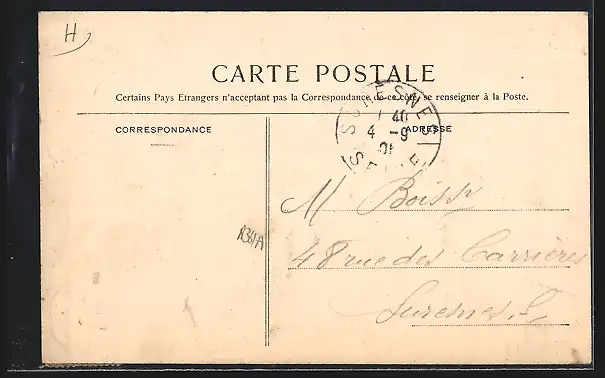 H
CARTE POSTALE
Certains Pays Etrangers n'acceptant pas la Correspondance de ce côté, se renseigner à la Poste.
SURESNES
40
4 -9
SEINE
CORRESPONDANCE
ADRESSE
M Boissy
48 rue des Carrières
Suresnes. S.